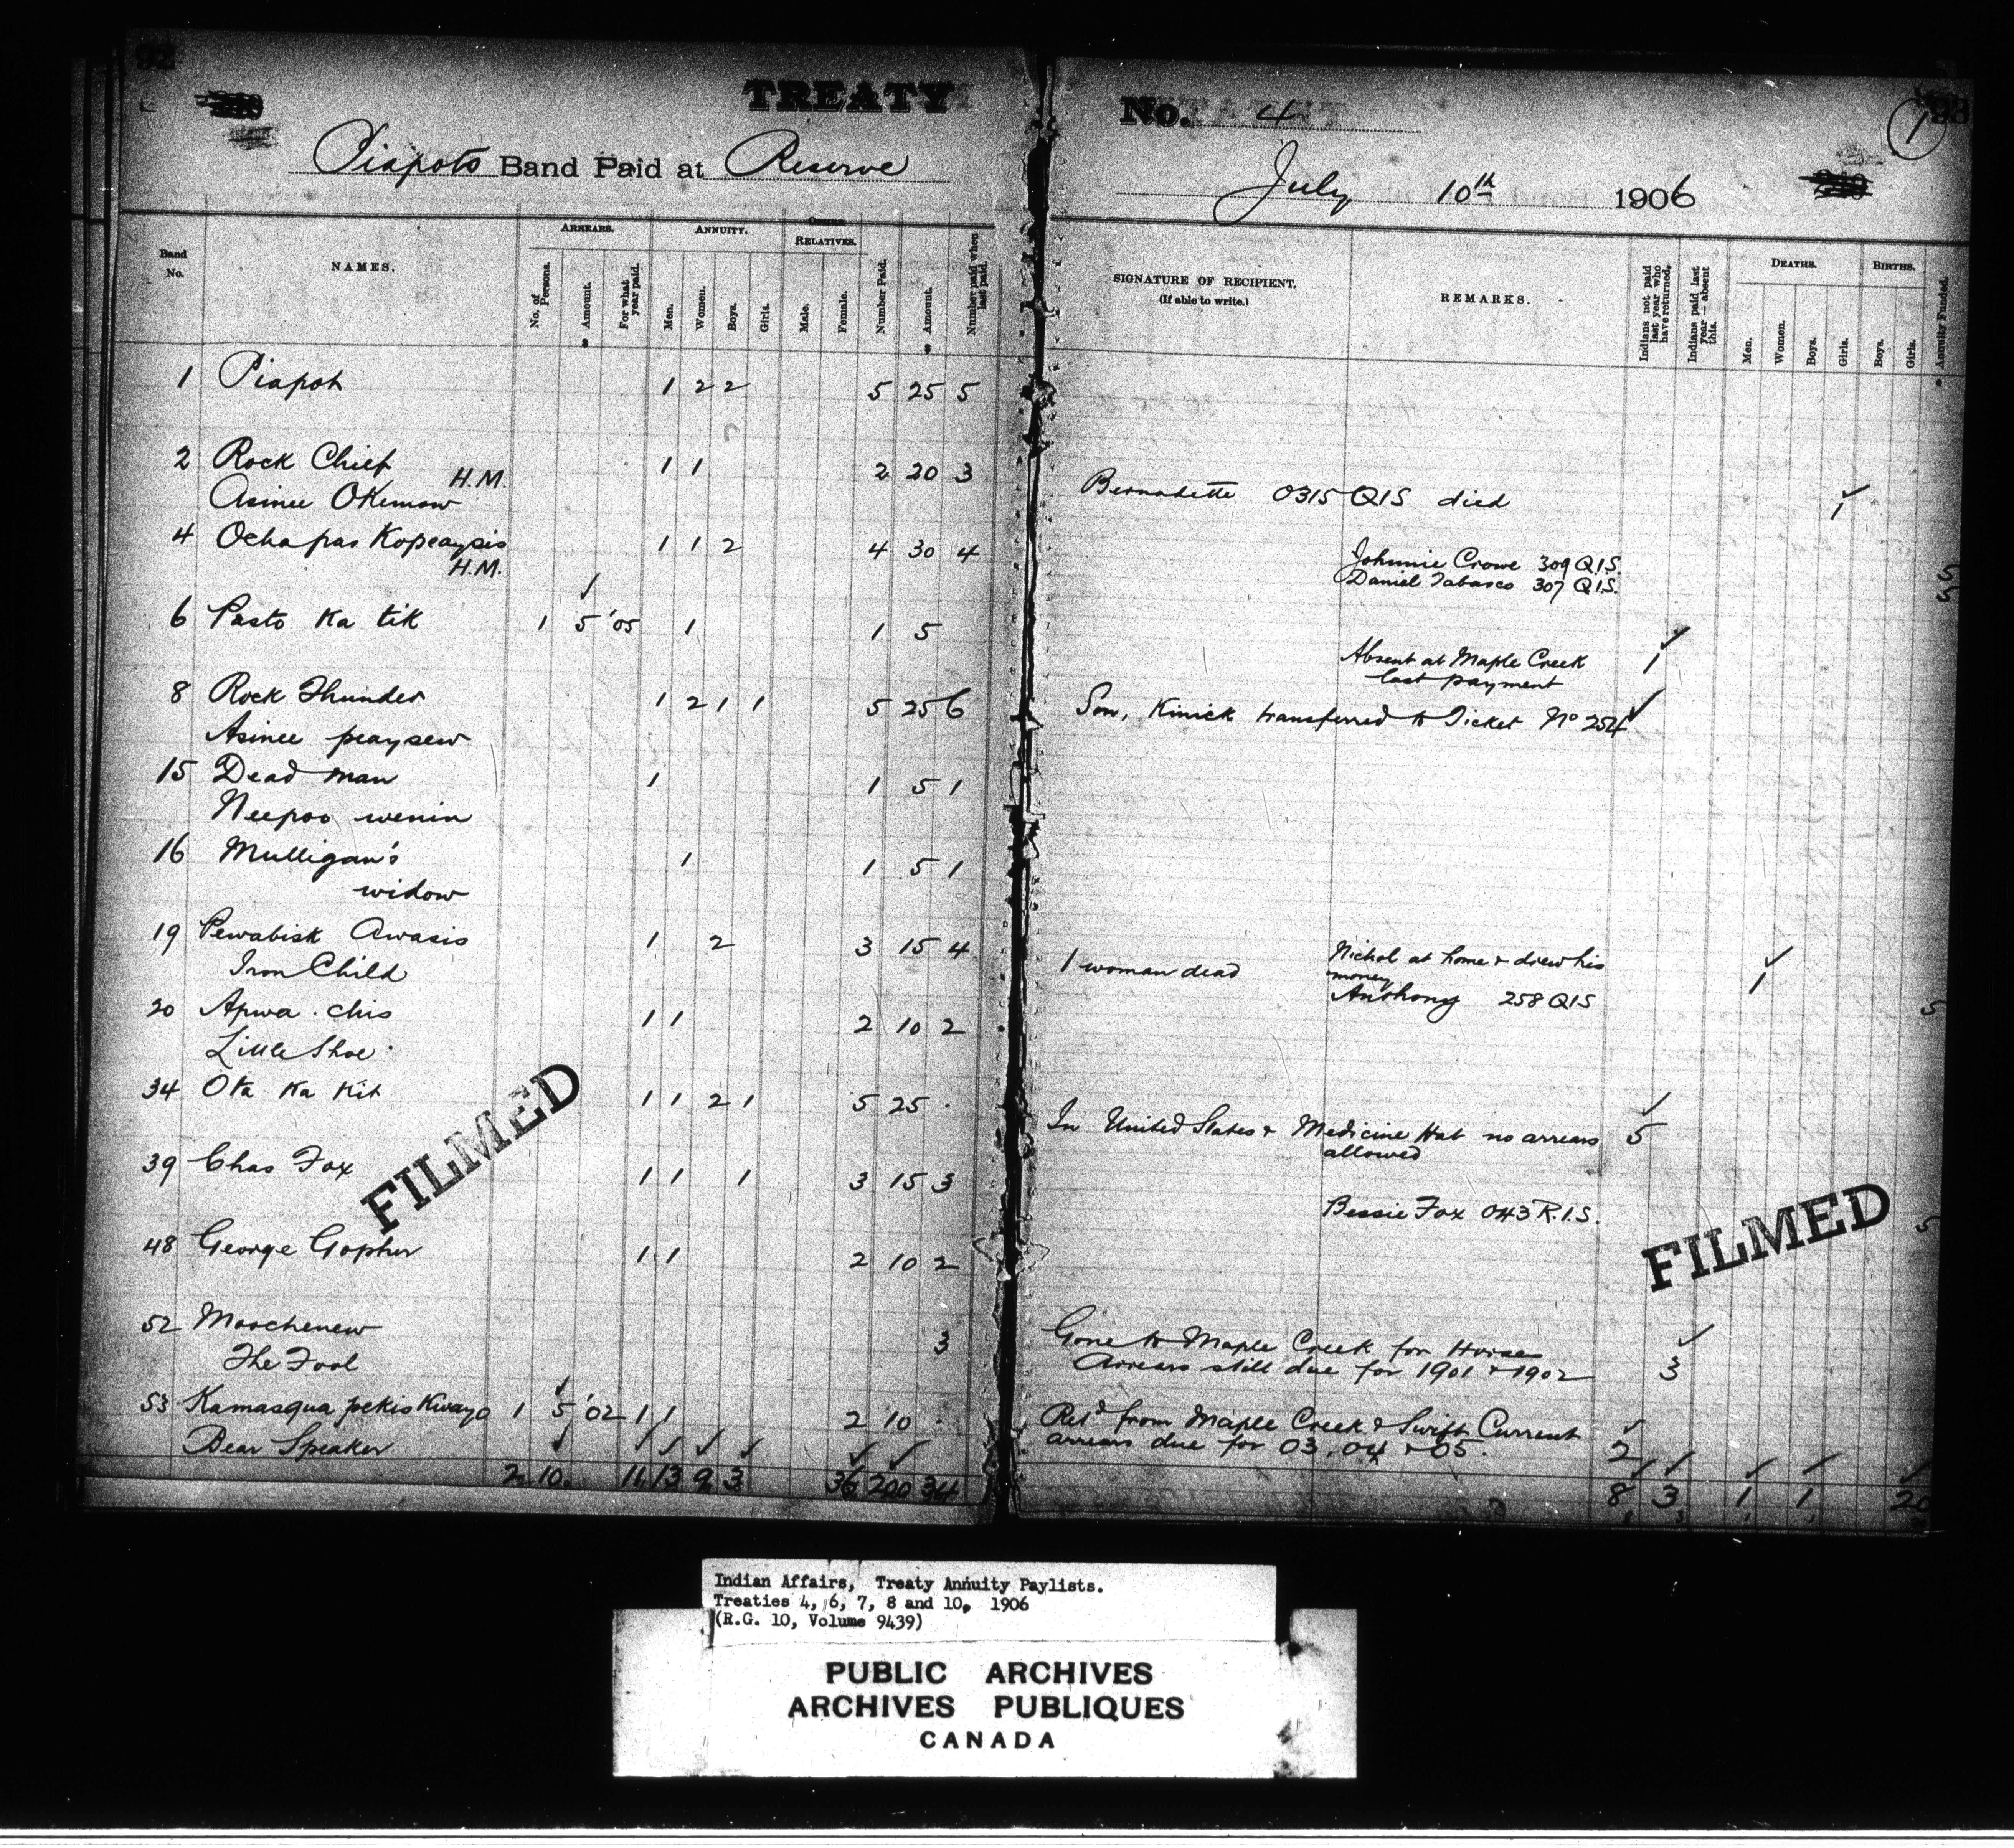 92
TREATY No. 4
1 93
Piapots Band Paid at Reserve July 10th 1906
Band No. NAMES. ARREARS. No. of Persons. Amount. For what year paid. ANNUITY. Men. Women. Boys. Girls. OTHER RELATIVES. Male. Female. Number Paid. Amount. Number paid when last paid.
SIGNATURE OF RECIPIENT. (If able to write.) REMARKS. Indians not paid last year who have returned. Indians paid last year—absent this. DEATHS. Men. Women. Boys. Girls. BIRTHS. Boys. Girls. Annuity Funded.
1 Piapot 1 2 2 5 25 5
2 Rock Chief H.M. 1 1 2 20 3
Asinee Okemow Bernadette 0315 QIS died 1
4 Ochapas Kopeaysis 1 1 2 4 30 4
H.M. Johnnie Crowe 309 Q.I.S. 5
Daniel Tabasco 307 Q.I.S. 5
6 Pasto Ka tik 1 5 '05 1 1 5
Absent at Maple Creek 1
last payment
8 Rock Thunder 1 2 1 1 5 25 6 Son, Kinick transferred to Ticket No 254
Asinee peaysew
15 Dead man 1 1 5 1
Neepoo wenin
16 Mulligan's 1 1 5 1
widow
19 Pewabisk Awasis 1 2 3 15 4 1 woman dead Nichol at home & drew his 1
money
Iron Child Anthony 258 QIS 5
20 Apwa . chis 1 1 2 10 2
Little Shoe
34 Ota Ka Kit 1 1 2 1 5 25 In United States & Medicine Hat no arrears 5
allowed
39 Chas Fox 1 1 1 3 15 3
Bessie Fox 043 R.I.S. 5
48 George Gopher 1 1 2 10 2
52 Moochenew 3 Gone to Maple Creek for Horses
The Fool Arrears still due for 1901 & 1902 3
53 Kamasqua pekis Kwayo 1 5 '02 1 1 2 10 Retd from Maple Creek & Swift Current
Bear Speaker arrears due for 03, 04 & 05. 2
2 10 11 13 9 3 36 200 34 8 3 1 1 20
FILMED
FILMED
Indian Affairs, Treaty Annuity Paylists.
Treaties 4, 6, 7, 8 and 10, 1906
(R.G. 10, Volume 9439)
PUBLIC ARCHIVES
ARCHIVES PUBLIQUES
CANADA